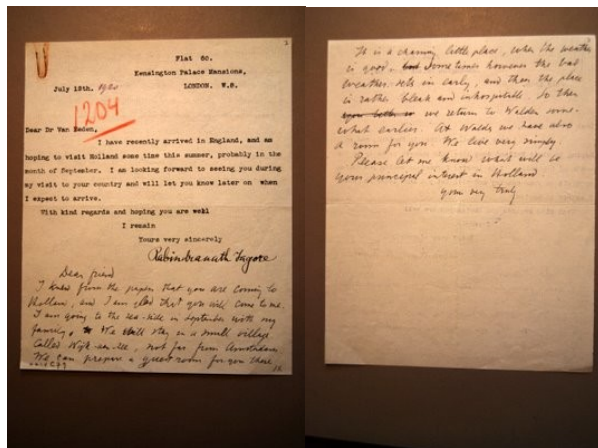 Flat 60.
Kensington Palace Mansions,
July 18th. 1920 LONDON. W.8.
1204
Dear Dr Van Eeden,
I have recently arrived in England, and am
hoping to visit Holland some time this summer, probably in the
month of September. I am looking forward to seeing you during
my visit to your country and will let you know later on when
I expect to arrive.
With kind regards and hoping you are well
I remain
Yours very sincerely
Rabindranath Tagore
Dear friend
I knew from the papers that you are coming to
Holland, and I am glad that you will come to me.
I am going to the sea-side in September with my
family. We shall stay in a small village
called Wijk-aan-Zee, not far from Amsterdam
We can prepare a guest room for you there.
It is a charming little place, when the weather
is good. Sometimes however the bad
weather sets in early, and then the place
is rather bleak and inhospitable. So then
we return to Walden some-
what earlier. At Walden we have also
a room for you. We live very simply.
Please let me know what will be
your principal interest in Holland
yours very truly